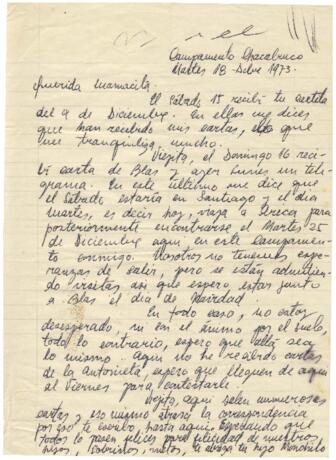 Campamento Chacabuco
Martes 18-Dcbre 1973.
Querida mamacita.
El Sábado 15 recibí tu cartita
del 9 de Diciembre. En ellas me dices
que han recibido mis cartas, que
me tranquiliza mucho.
Viejita, el Domingo 16 reci
bí carta de Blas y ayer Lunes un tele
grama. En este último me dice que
el Sábado estaría en Santiago y el día
Martes, es decir hoy, viaja a Arica para
posteriormente encontrarse el Martes 25
de Diciembre aquí en este Campamen
to conmigo. Nosotros no tenemos espe
ranzas de salir, pero se están admitien
do visitas así que espero estar junto
a Blas el día de Navidad.
En todo caso, no estoy
desesperado, ni con el ánimo por el suelo,
todo lo contrario, espero que allá sea
lo mismo. Aquí no he recibido cartas
de la Antonieta, espero que lleguen de aquí
al Viernes para contestarle.
Viejita, aquí salen numerosas
cartas y eso mismo atrasa la correspondencia
por eso te escribo hasta aquí, esperando que
todos lo pasen felices para felicidad de nuestros
hijos, sobrinos, nietos, te abraza tu hijo